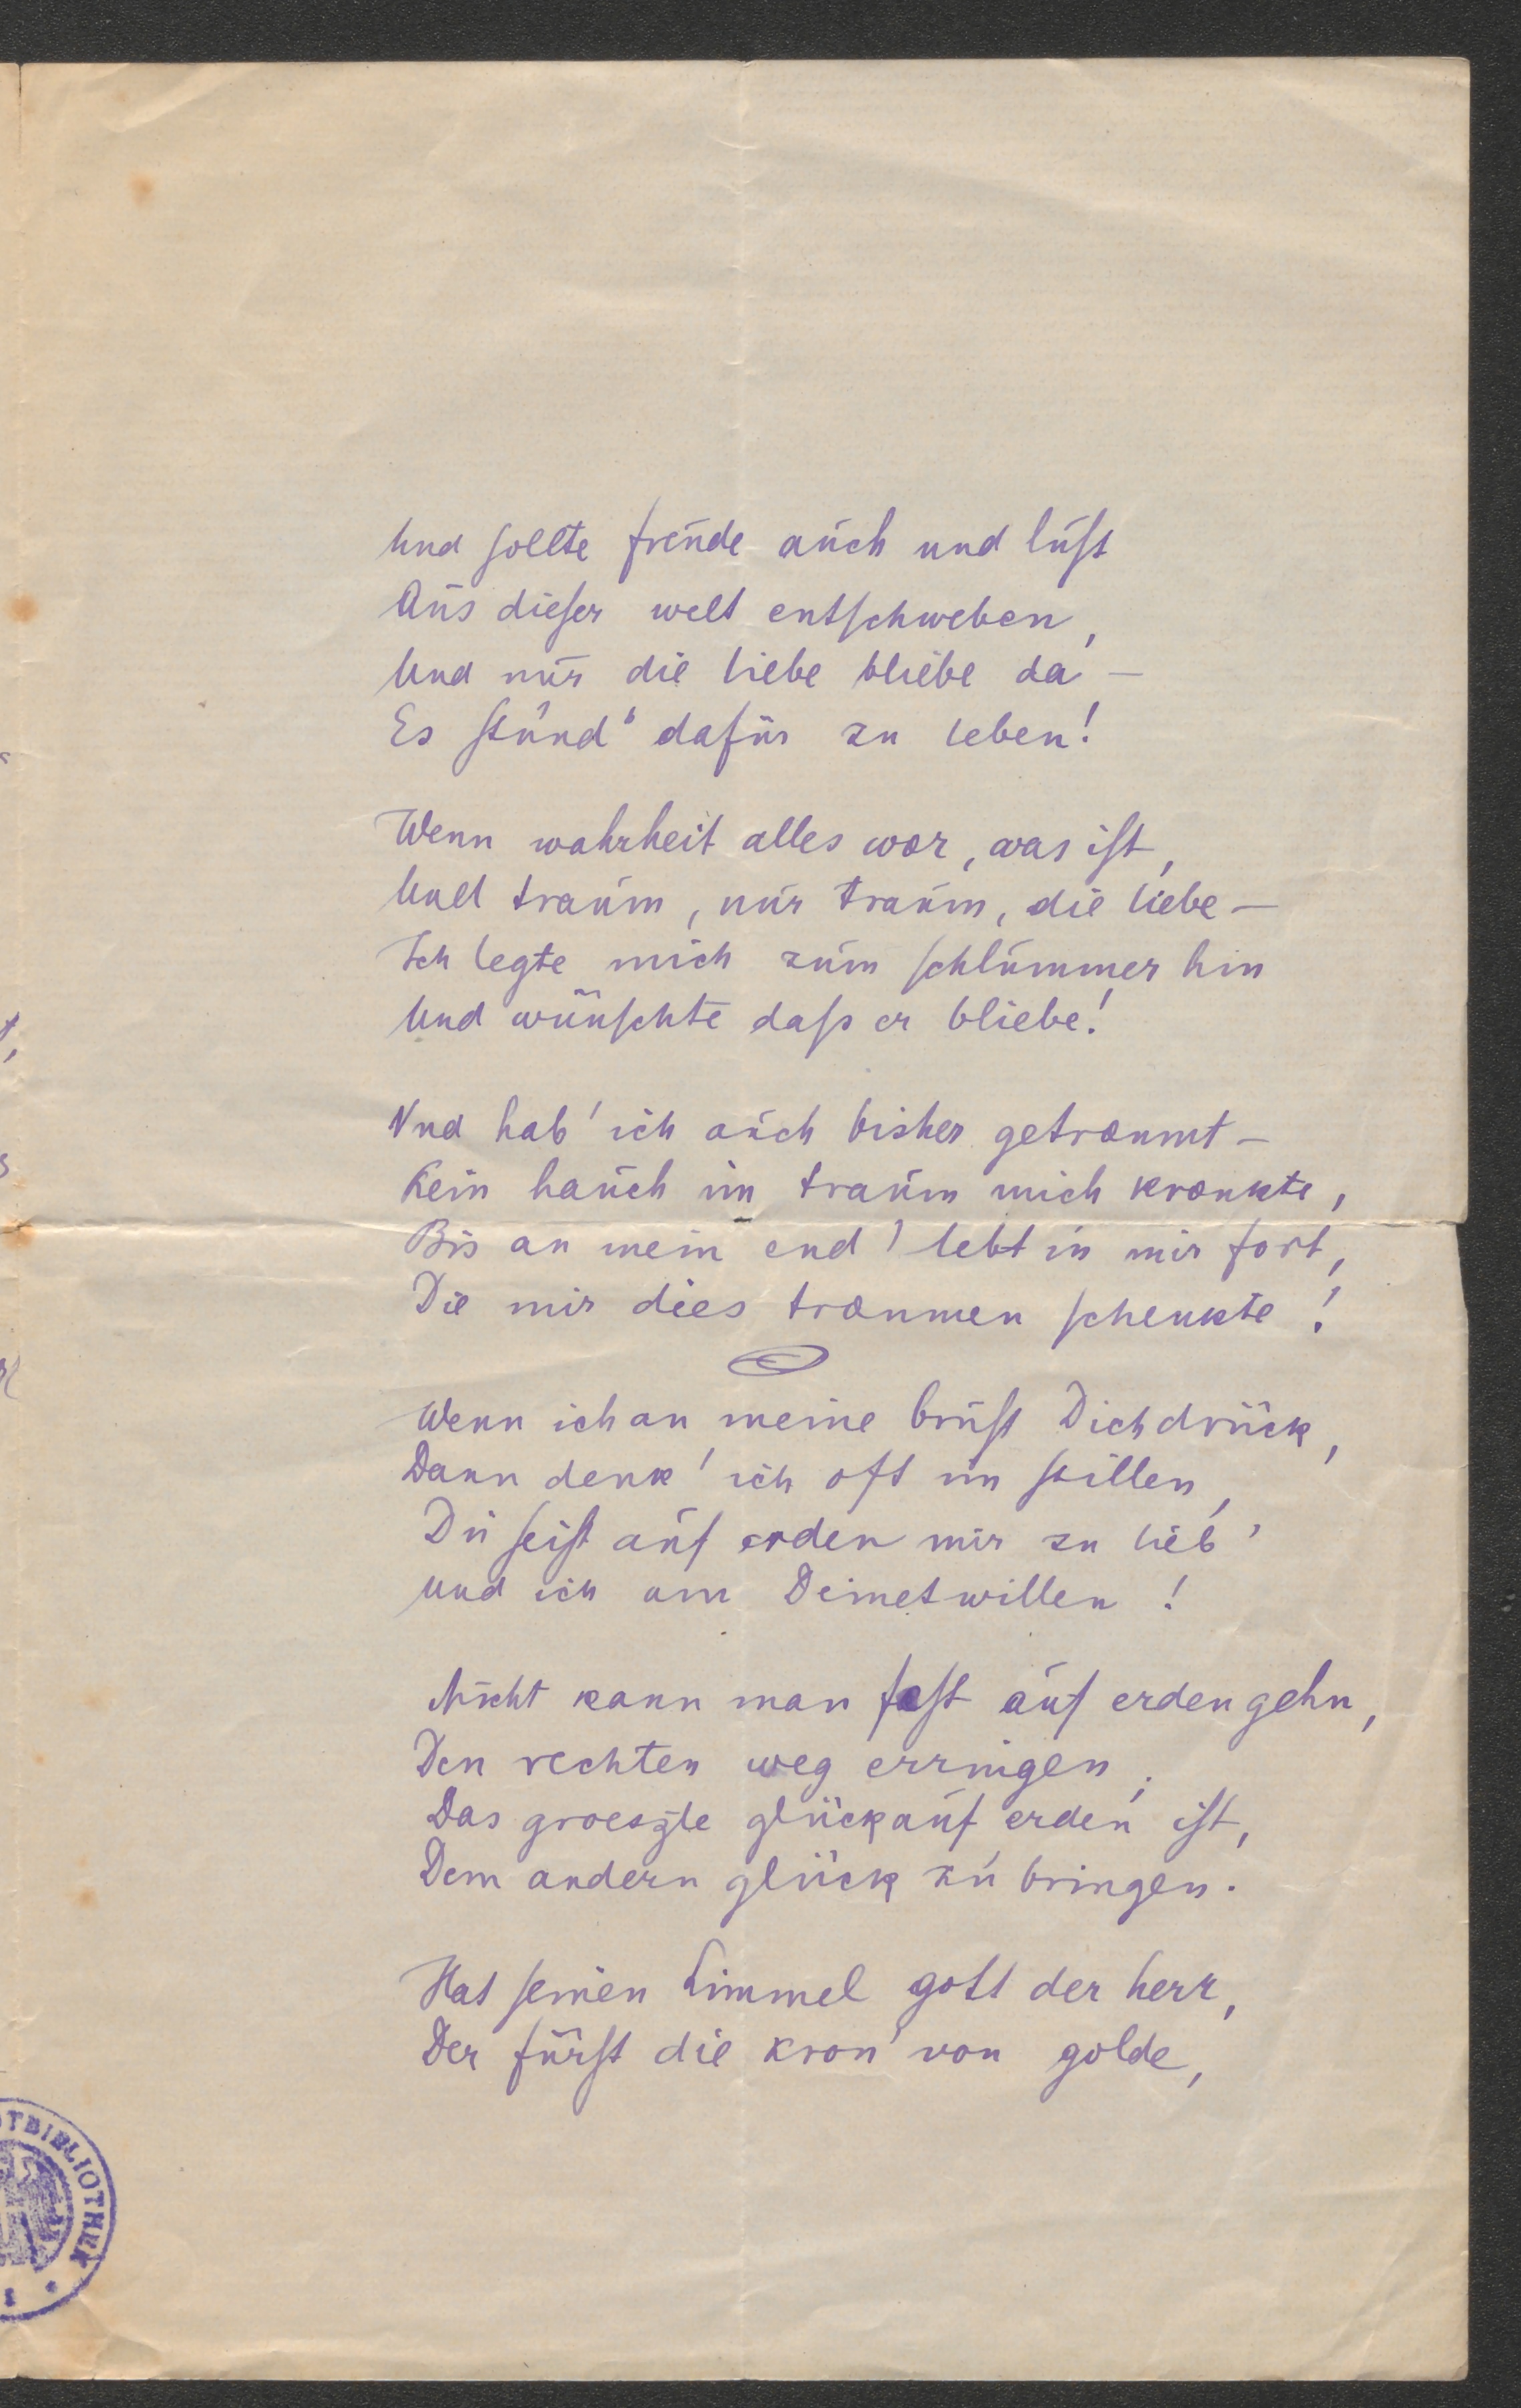 Und sollte freude auch und lust
Aus dieser welt entschweben,
Und nur die liebe bliebe da –
Es stünd' dafür zu leben!
Wenn wahrheit alles wær, was ist,
Und traum, nur traum, die liebe –
Ich legte mich zum schlummer hin
Und wünschte dass er bliebe!
Und hab' ich auch bisher getræumt –
Kein hauch im traum mich krænkte,
Bis an mein end' lebt in mir fort,
Die mir dies træumen schenkte!
Wenn ich an meine brust Dich drück,
Dann denk' ich oft im stillen,
Du seist auf erden mir zu lieb'
und ich um Deinetwillen!
Nicht kann man fest auf erden gehn,
Den rechten weg erringen;
Das groeszte glück auf erden ist,
Dem andern glück zu bringen.
Hat seinen himmel gott der herr,
Der fürst die kron' von golde,
TBIBLIOTHEK